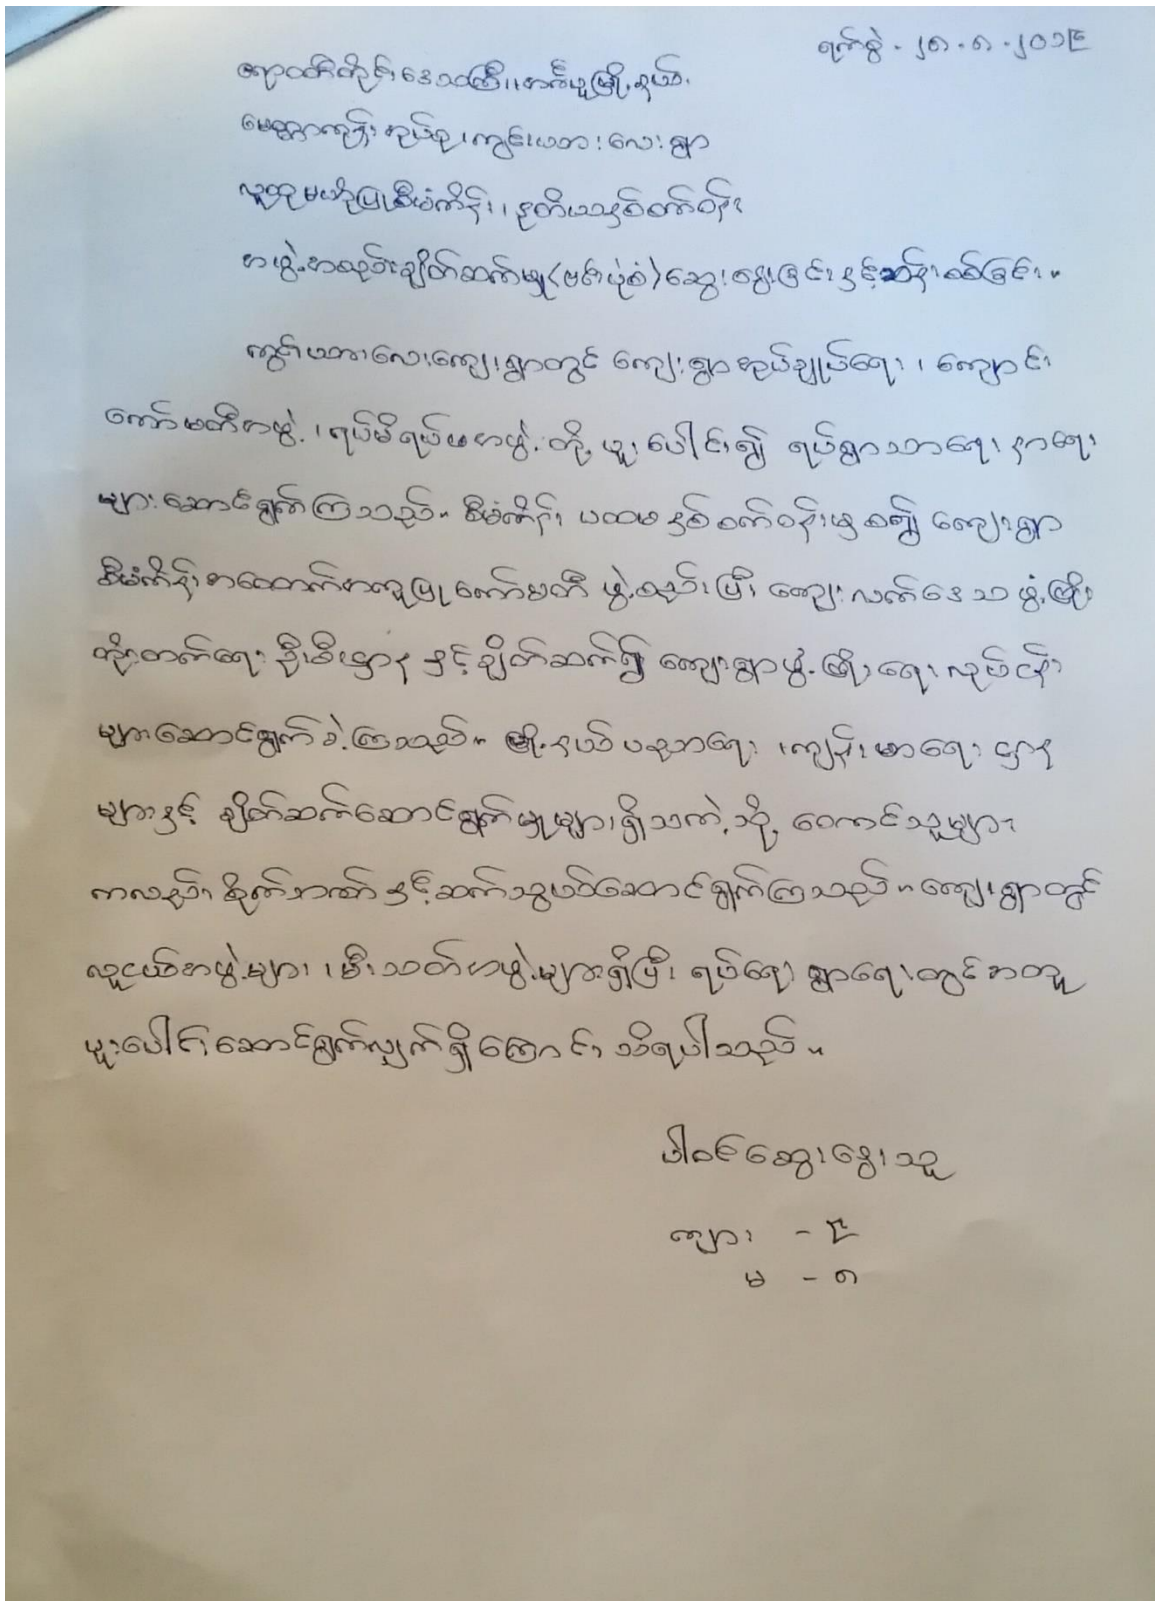 ရက်စွဲ - ၂၈ - ၈ - ၂၀၁၉
ဧရာဝတီတိုင်းဒေသကြီး၊ အင်္ဂပူမြို့နယ်၊
မေတ္တာကုန်းအုပ်စု၊ ကျွင်းယားလေးရွာ
လူထုဗဟိုပြုစီမံကိန်း၊ ဒုတိယနှစ်စက်ဝန်း
အဖွဲ့အစည်းချိတ်ဆက်မှု (ဗင်းပုံစံ) ဆွေးနွေးခြင်းနှင့်ဆန်းစစ်ခြင်း။
ကျွင်းယားလေးကျေးရွာတွင် ကျေးရွာအုပ်ချုပ်ရေး၊ ကျောင်း
ကော်မတီအဖွဲ့၊ ရပ်မိရပ်ဖအဖွဲ့တို့ ပူးပေါင်း၍ ရပ်ရွာသာရေး နာရေး
များဆောင်ရွက်ကြသည်။ စီမံကိန်း ပထမနှစ်စက်ဝန်းမှစ၍ ကျေးရွာ
စီမံကိန်းအထောက်အကူပြုကော်မတီ ဖွဲ့စည်းပြီး ကျေးလက်ဒေသဖွံ့ဖြိုး
တိုးတက်ရေး ဦးစီးဌာန နှင့်ချိတ်ဆက်၍ ကျေးရွာဖွံ့ဖြိုးရေး လုပ်ငန်း
များဆောင်ရွက်ခဲ့ကြသည်။ မြို့နယ်ပညာရေး၊ ကျန်းမာရေး ဌာန
များနှင့် ချိတ်ဆက်ဆောင်ရွက်မှုများရှိသကဲ့သို့ ဝေကင်သူများ
ကလည်း စိုက်ဘဏ်နှင့်ဆက်သွယ်ဆောင်ရွက်ကြသည်။ ကျေးရွာတွင်
လူငယ်အဖွဲ့များ၊ မီးသတ်အဖွဲ့များရှိပြီး ရပ်ရေး ရွာရေးတွင်အတူ
ပူးပေါင်းဆောင်ရွက်လျှက်ရှိကြောင်း သိရပါသည်။
ပါဝင်ဆွေးနွေးသူ
ကျား - ၉
မ - ၈